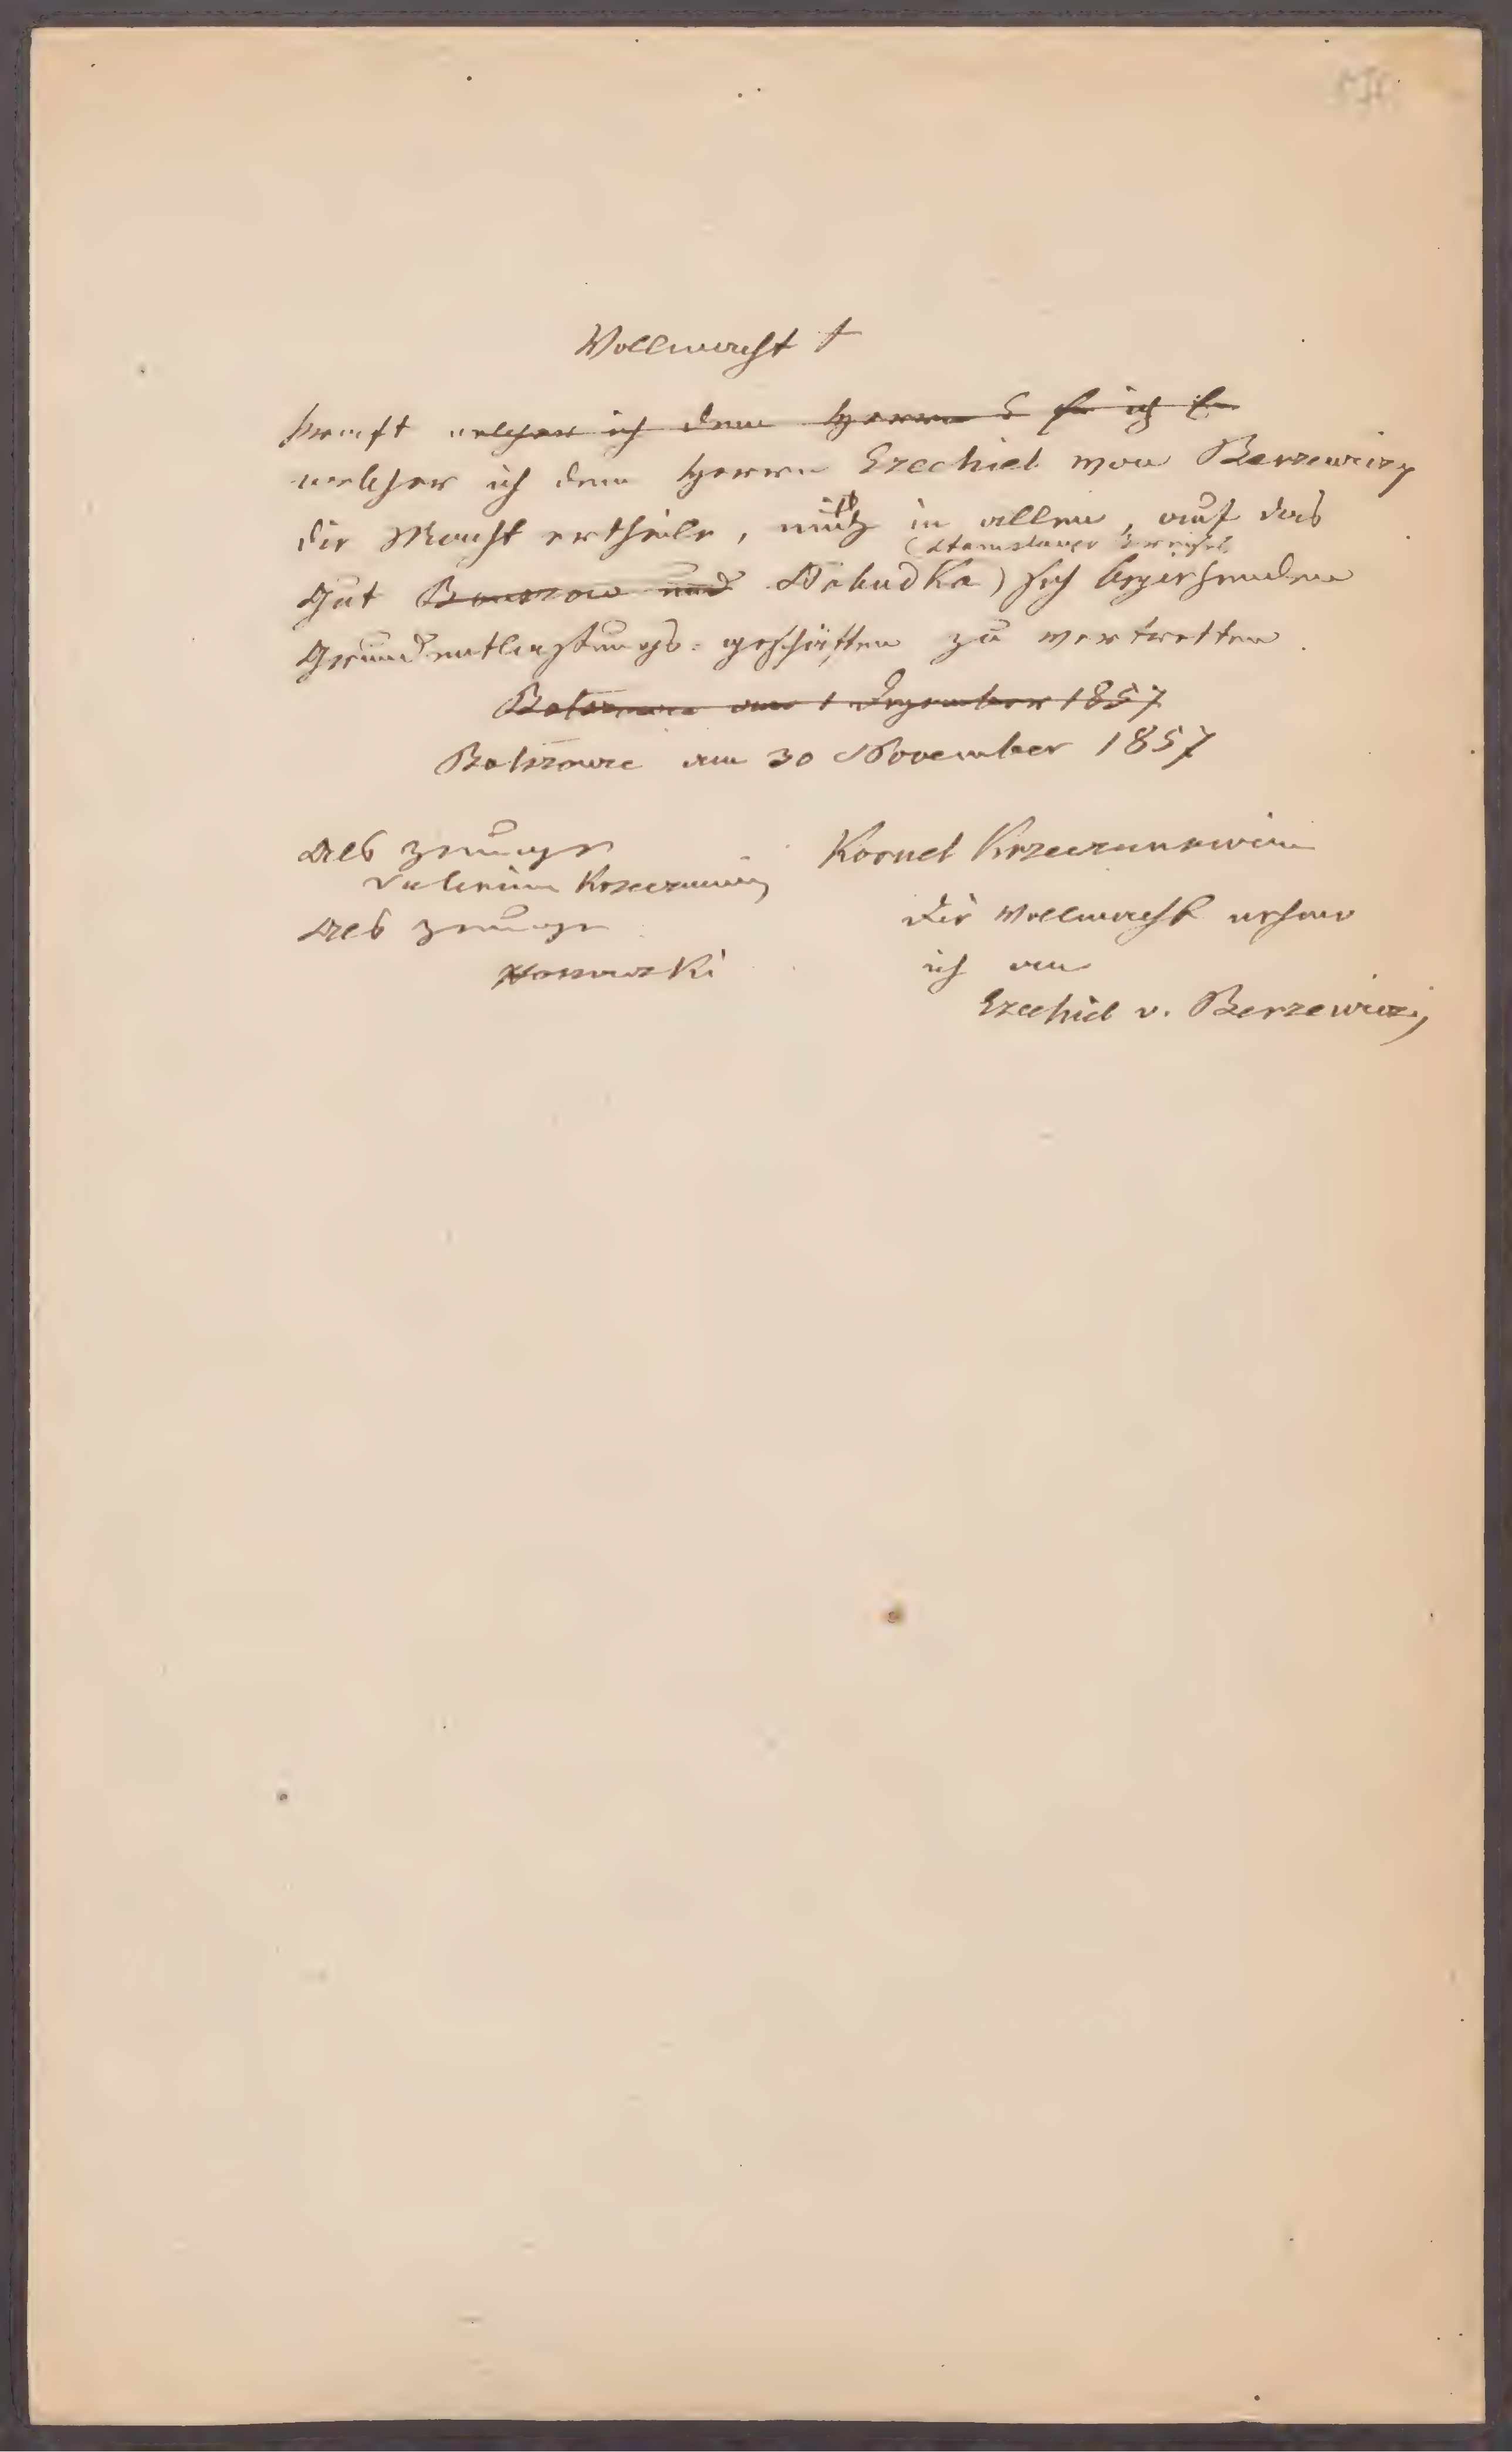 Vollmacht †
kraft welcher ich dem Herrn E für ich E
welcher ich dem Herrn Ezechiel von Berzewiczy
die Macht ertheile, mich in allen, auf das
(Stanislauer Kreises
Gut Bouszow und Dehudka) sich beziehenden
Grundentlastungs-geschäften zu vertretten.
Bolszowce am 1 Dezember 1857
Bolszowce am 30 November 1857
Als Zeuge
Kornel Krzeczunowicz
Valerian Krzeczunowicz
Als Zeuge
Die Vollmacht nehme
Nossowski
ich an
Ezechiel v. Berzewiczy